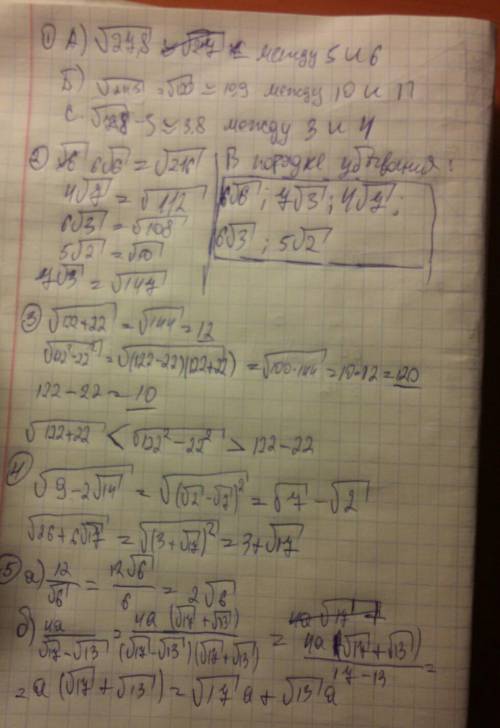 ① А) √27,8 между 5 и 6
Б) ≃ 10,9 между 10 и 11
С. - 5 ≃ 3,8 между 3 и 4
② 6√6 = √216
4√7 = √112
6√3 = √108
5√2 = √50
7√3 = √147
В порядке убывания:
6√6 ; 7√3 ; 4√7 ;
6√3 ; 5√2
③ √122+22 = √144 = 12
√122²-22² = √(122-22)(122+22) = √100·144 = 10·12 = 120
122-22 = 10
√122+22 < √122²-22² > 122-22
④
√9-2√14 = √(√2-√7)² = √7 - √2
√26+6√17 = √(3+√17)² = 3+√17
⑤ а) 12/√6 = 12√6/6 = 2√6
б) 4а/(√17-√13) = 4а(√17+√13)/((√17-√13)(√17+√13)) = 4а(√17+√13)/(17-13) =
= а(√17+√13) = √17а + √13а